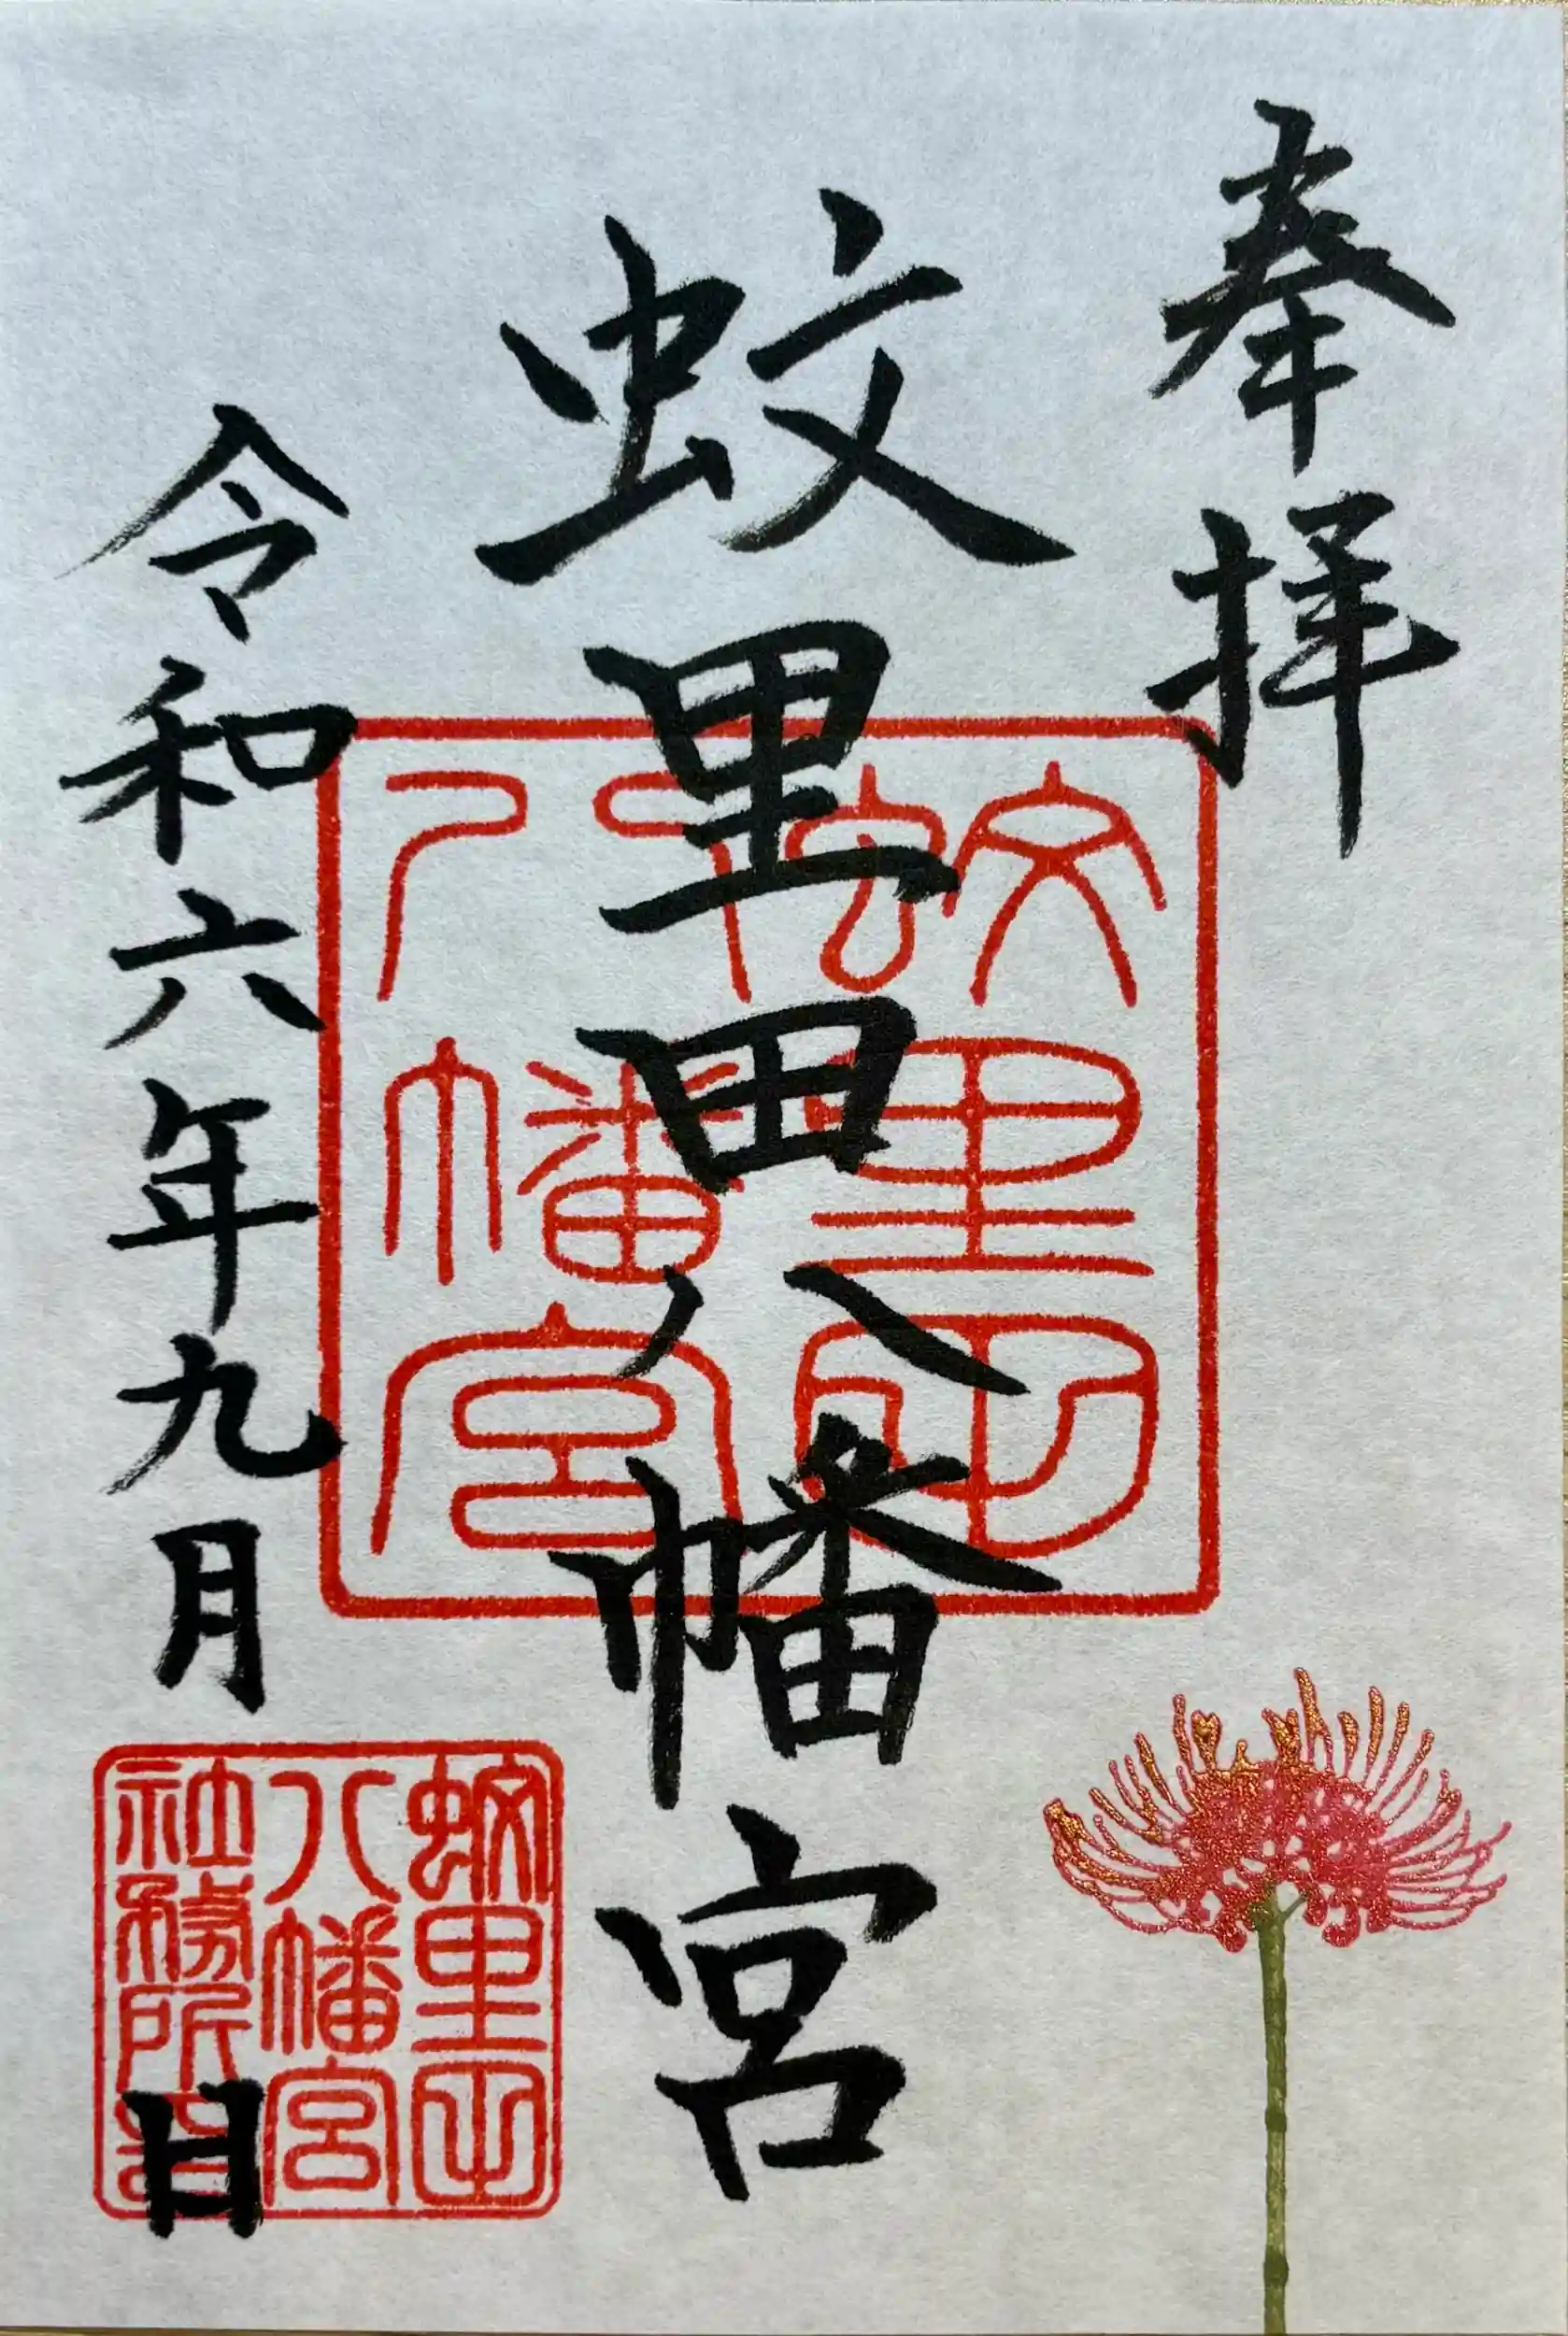 奉拝
蚊里田八幡宮
令和六年九月 日
蚊里田
八幡宮
蚊里田
八幡宮
社務所